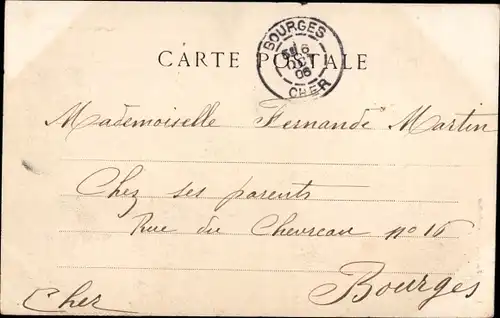 BOURGES
CARTE POSTALE
06
CHER
Mademoiselle Fernande Martin
Chez ses parents
Rue du Chevreau no 16
Bourges
Cher